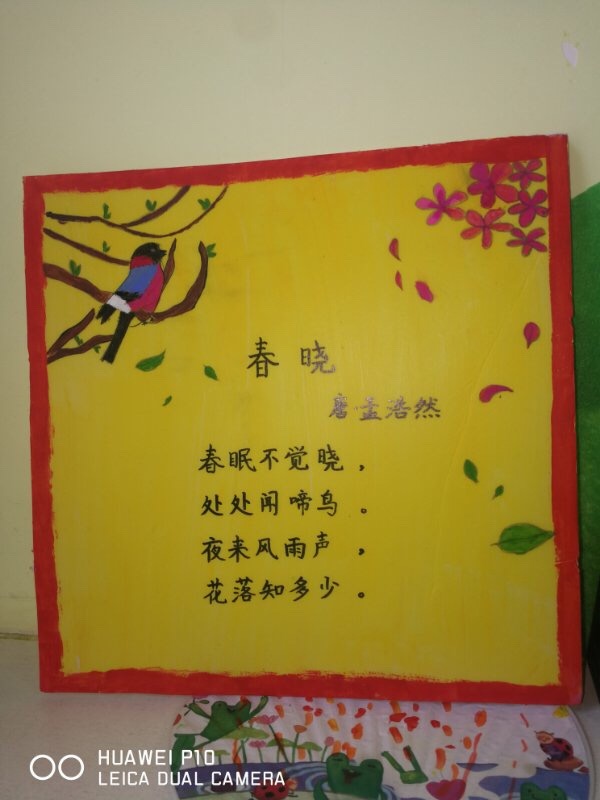 春晓
唐·孟浩然
春眠不觉晓，
处处闻啼鸟。
夜来风雨声，
花落知多少。
HUAWEI P10
LEICA DUAL CAMERA